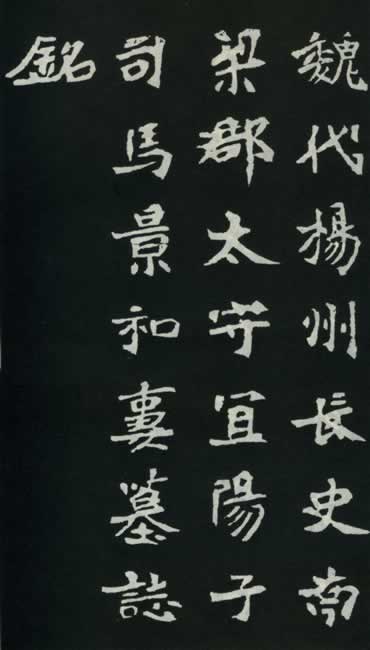 魏代揚州長史南
梁郡太守宜陽子
司馬景和妻墓誌
銘